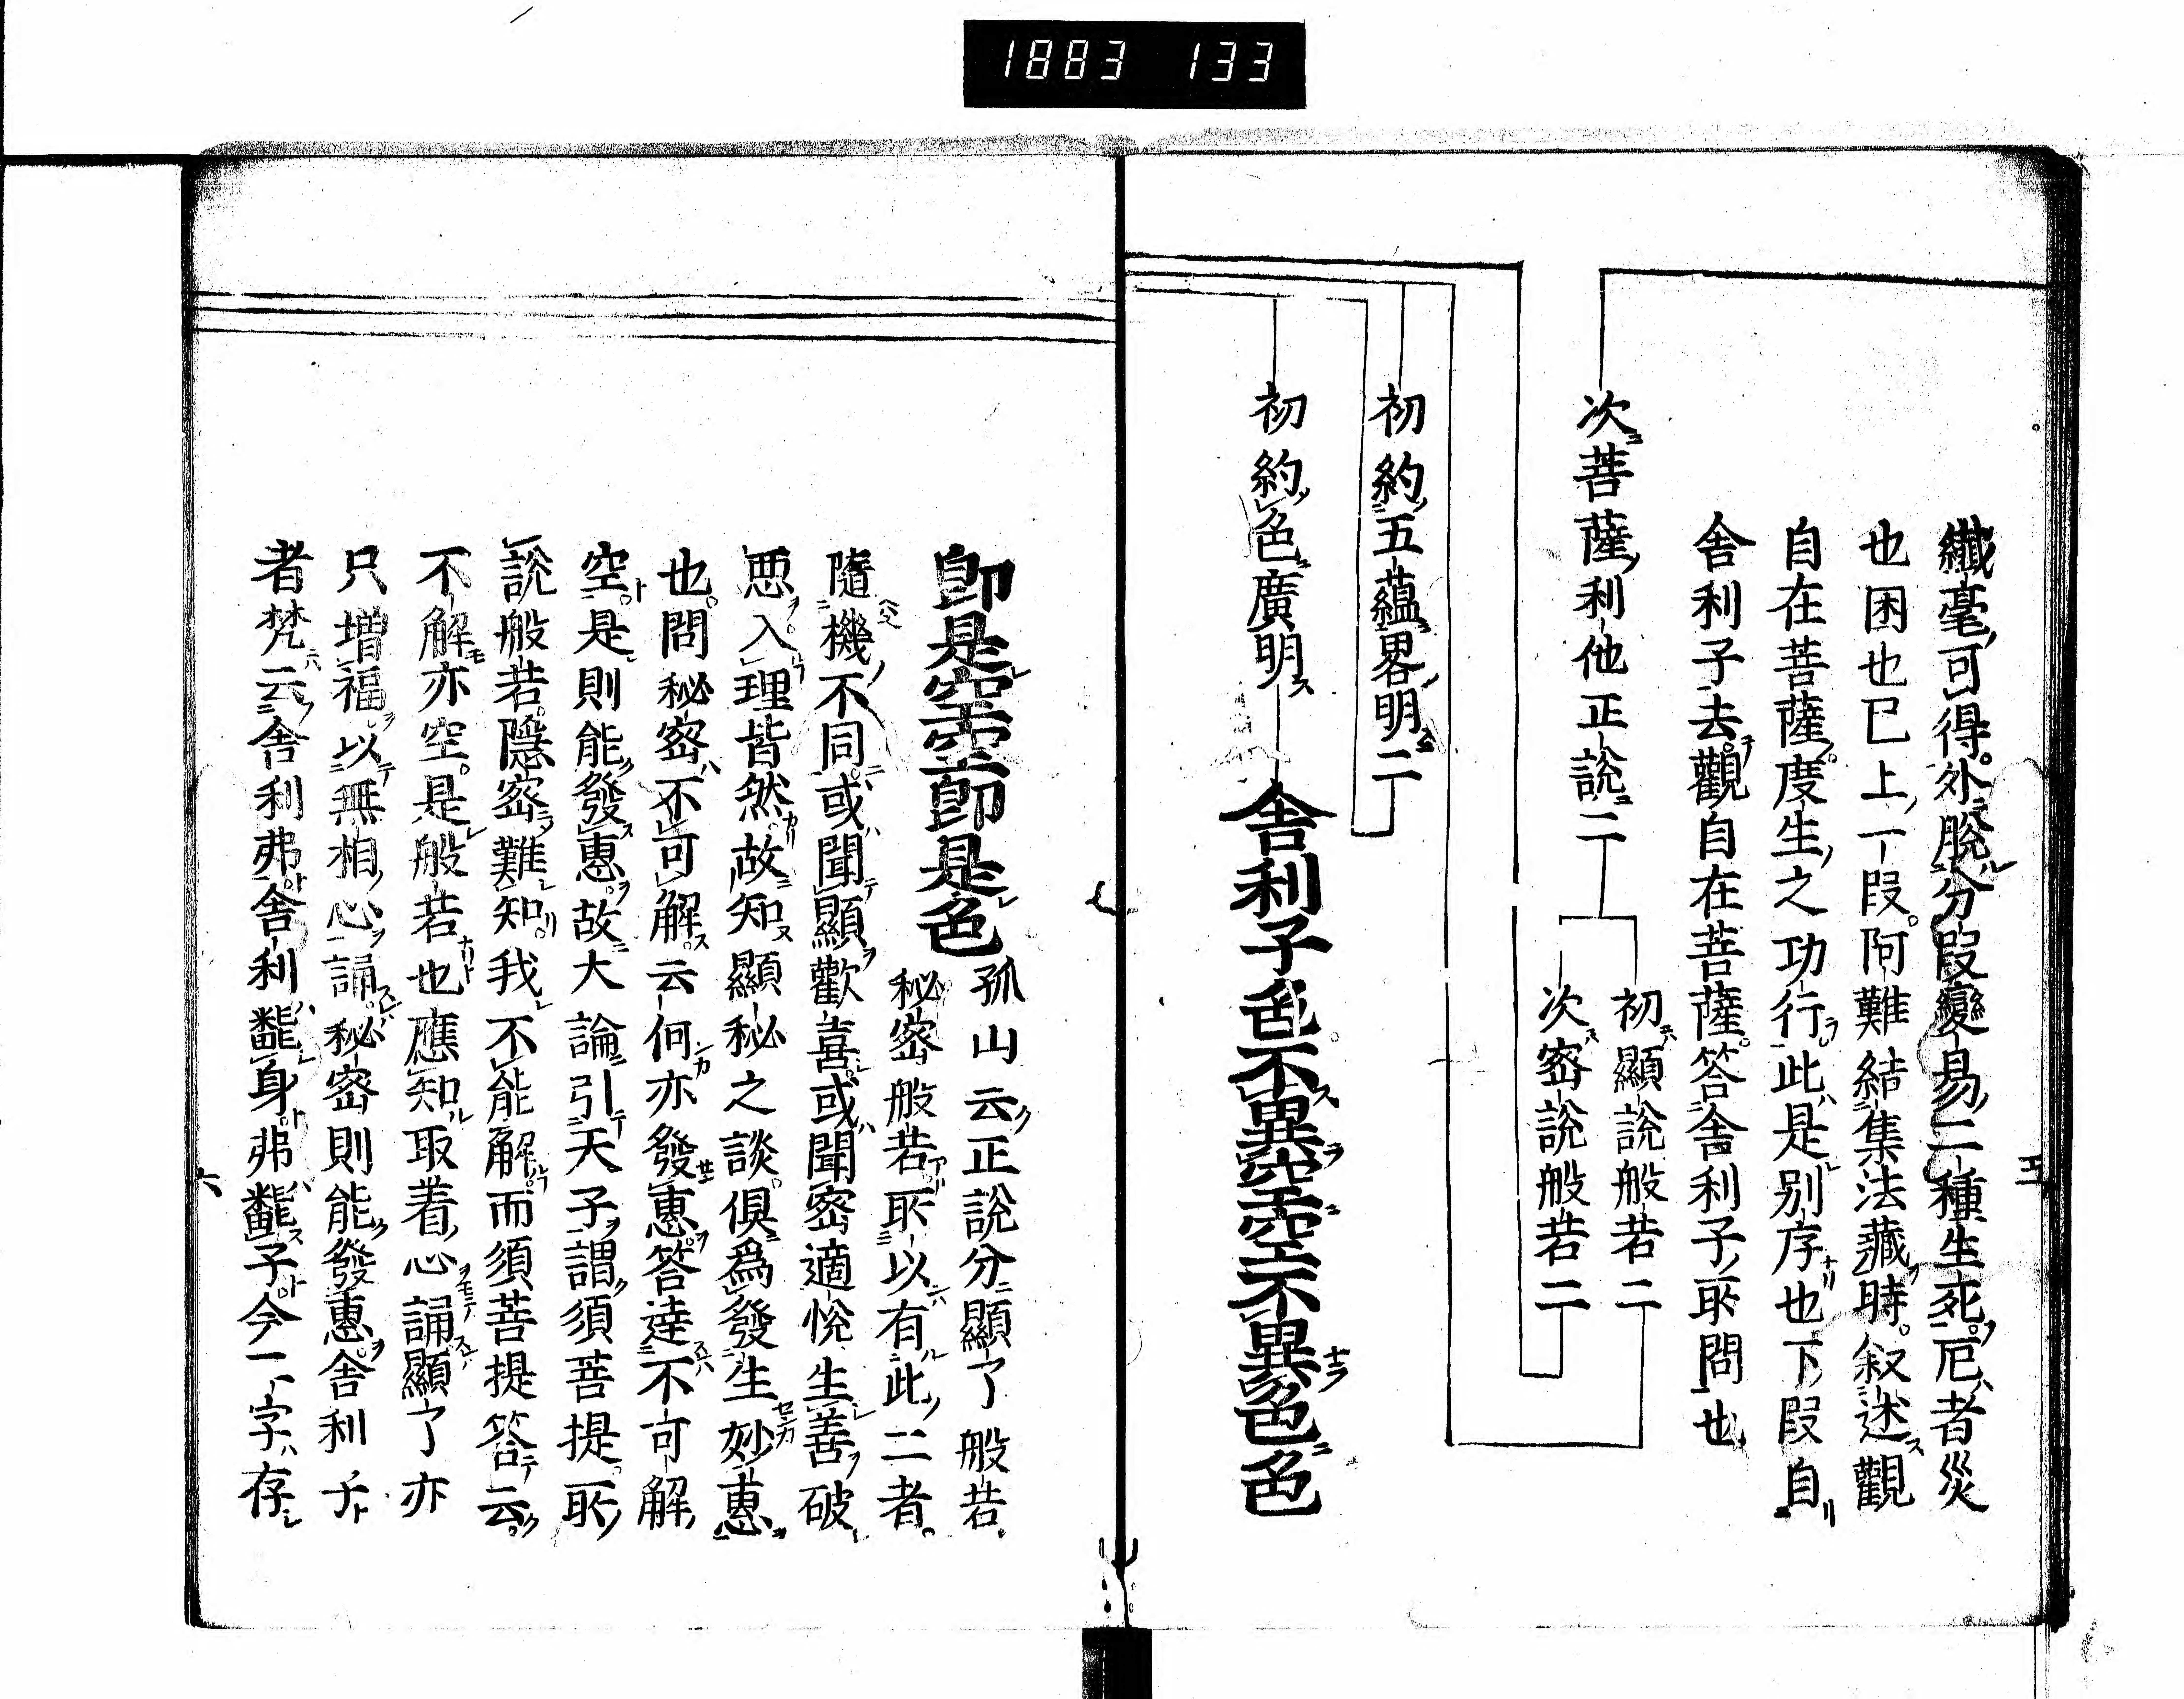 1883 133
纖毫可得外脫分段變易二種生死厄者災
也困也已上一段阿難結集法藏時叙述觀
自在菩薩度生之功行此是別序也下段自
舍利子去觀自在菩薩答舍利子所問也
次菩薩利他正說二
初顯說般若二
次密說般若二
初約五蘊畧明二
初約色廣明
舍利子色不異空空不異色色
五
卽是空空卽是色
孤山云正說分顯了般若
秘密般若所以有此二者
隨機不同或聞顯歡喜或聞密適悅生善破
惡入理皆然故知顯秘之談俱爲發生妙惠
也問秘密不可解云何亦發惠答達不可解
空是則能發惠故大論引天子謂須菩提所
說般若隱密難知我不能解而須菩提答云
不解亦空是般若也應知取着心誦顯了亦
只增福以無相心誦秘密則能發惠舍利子
者梵云舍利弗舍利翻身弗翻子今一字存
六